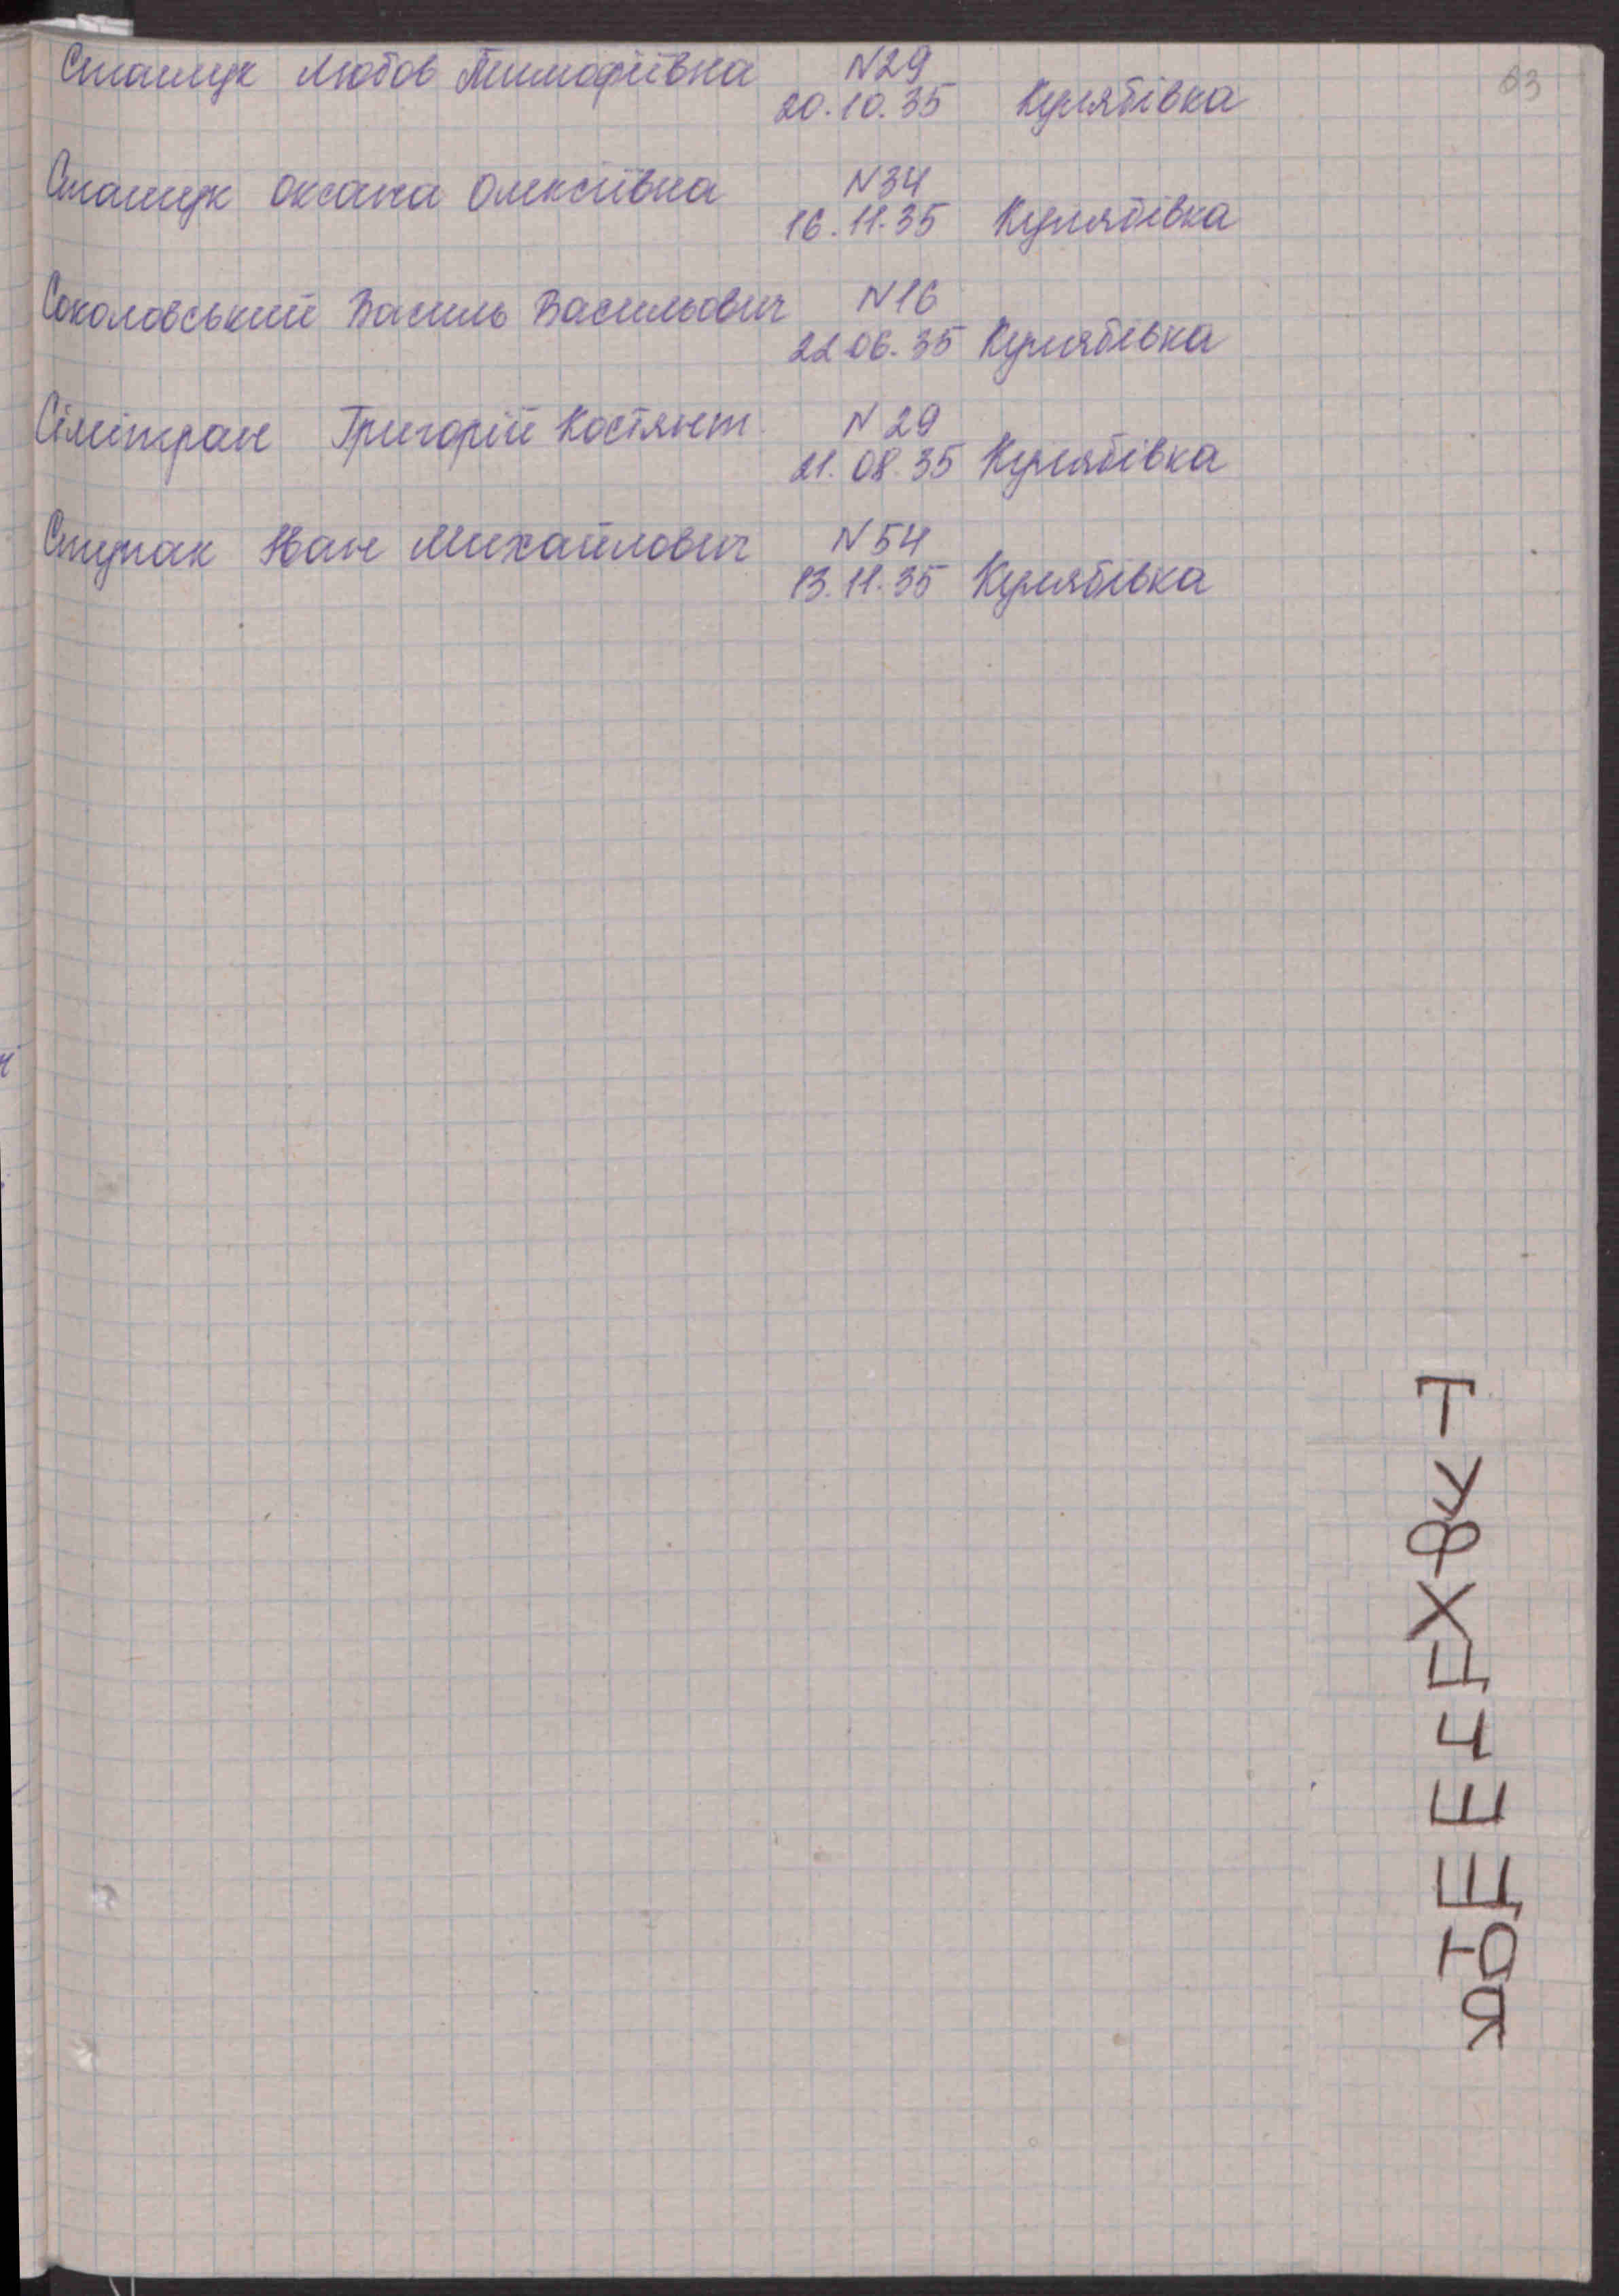 63
Сташук Любов Тимофіївна N29
20.10.35 Кулябівка
Сташук Оксана Олексіївна N34
16.11.35 Кулябівка
Соколовський Василь Васильович N16
22.06.35 Кулябівка
Григорій Костянт. N29
21.08.35 Кулябівка
Ступак Іван Михайлович N54
13.11.35 Кулябівка
Т
У
Ф
Х
Ц
Ч
Ш
Щ
Ю
Я